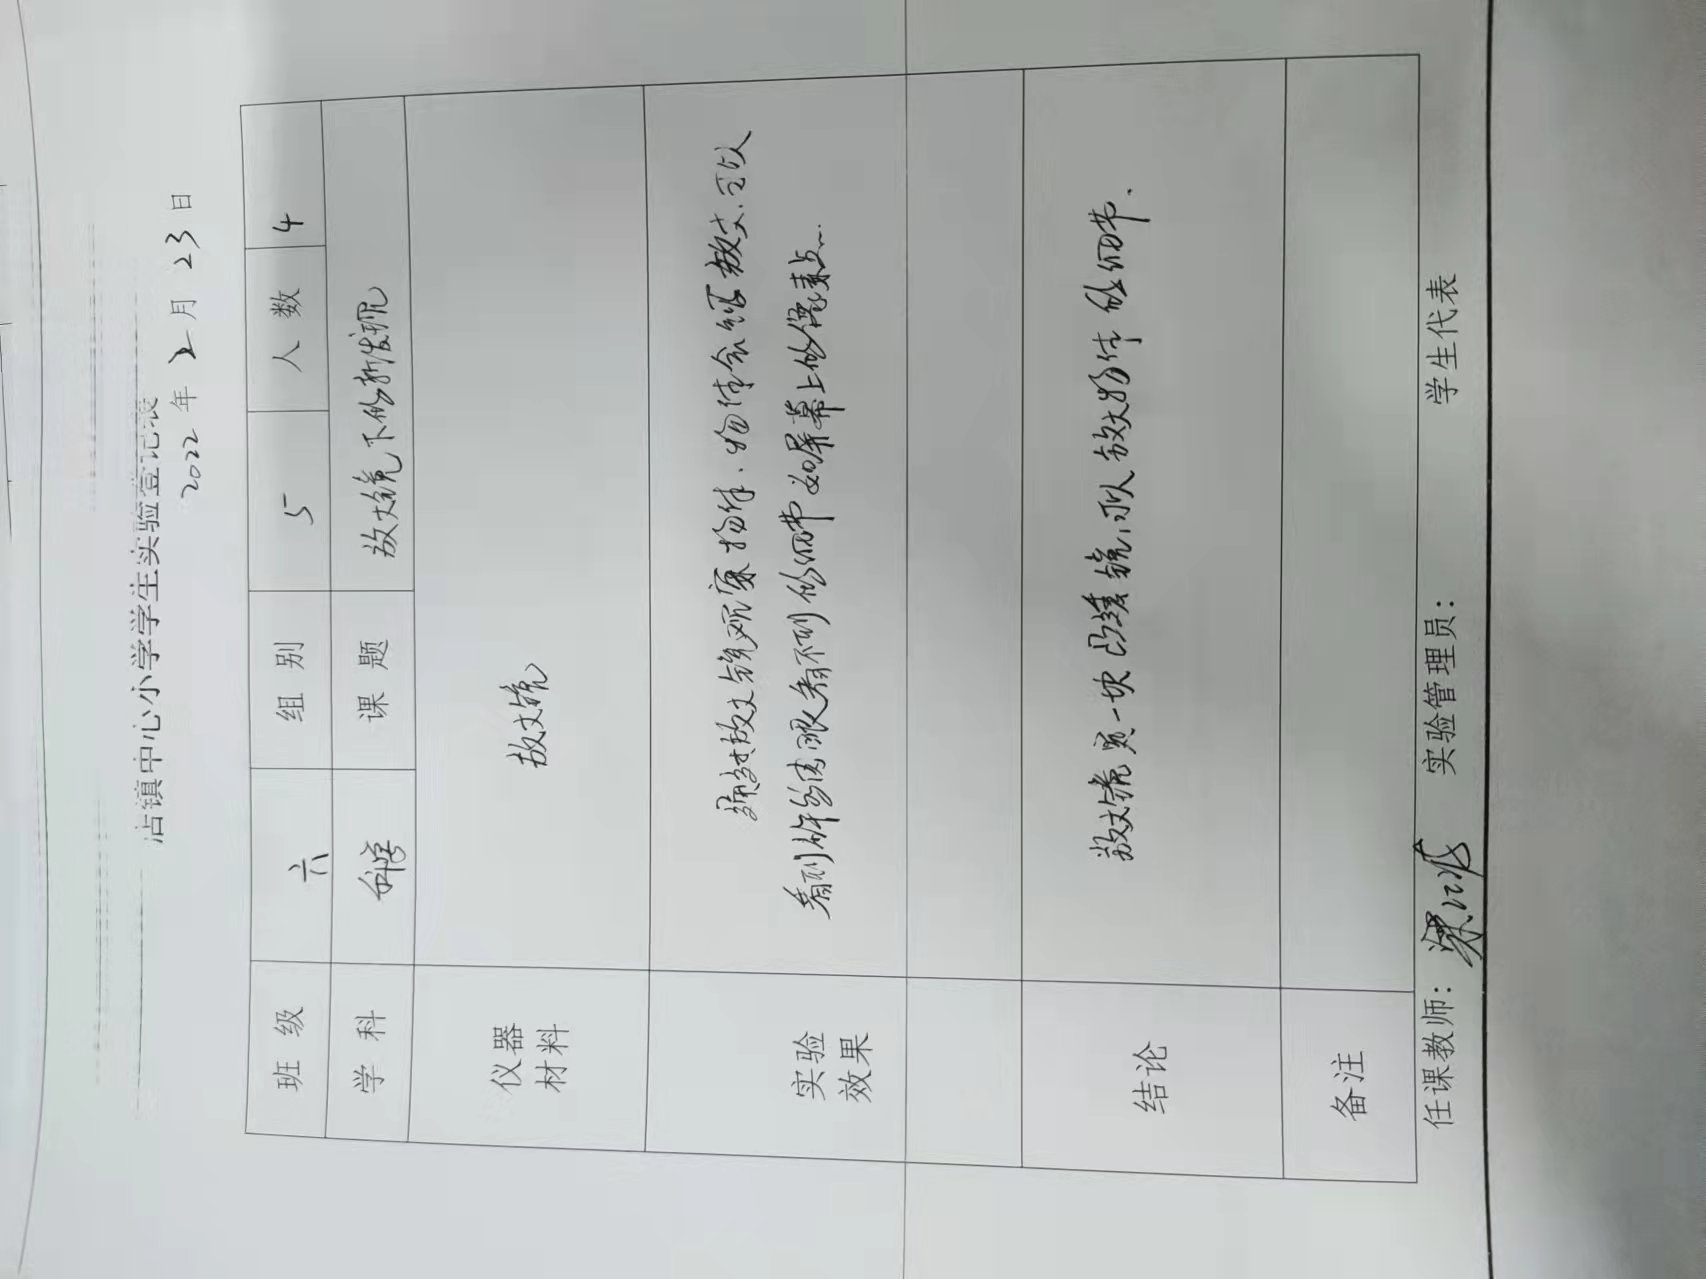 沾镇中心小学学生实验登记表
2022年2月23日
班级 六 组别 5 人数 4
学科 科学 课题 放大镜下的新发现
仪器材料 放大镜
实验效果
通过放大镜观察物体,物体会被放大,可以
看到许多肉眼看不到的细节 如屏幕上的像素点...
结论 放大镜是一块凸透镜,可以放大物体的细节.
备注
任课教师: 实验管理员: 学生代表